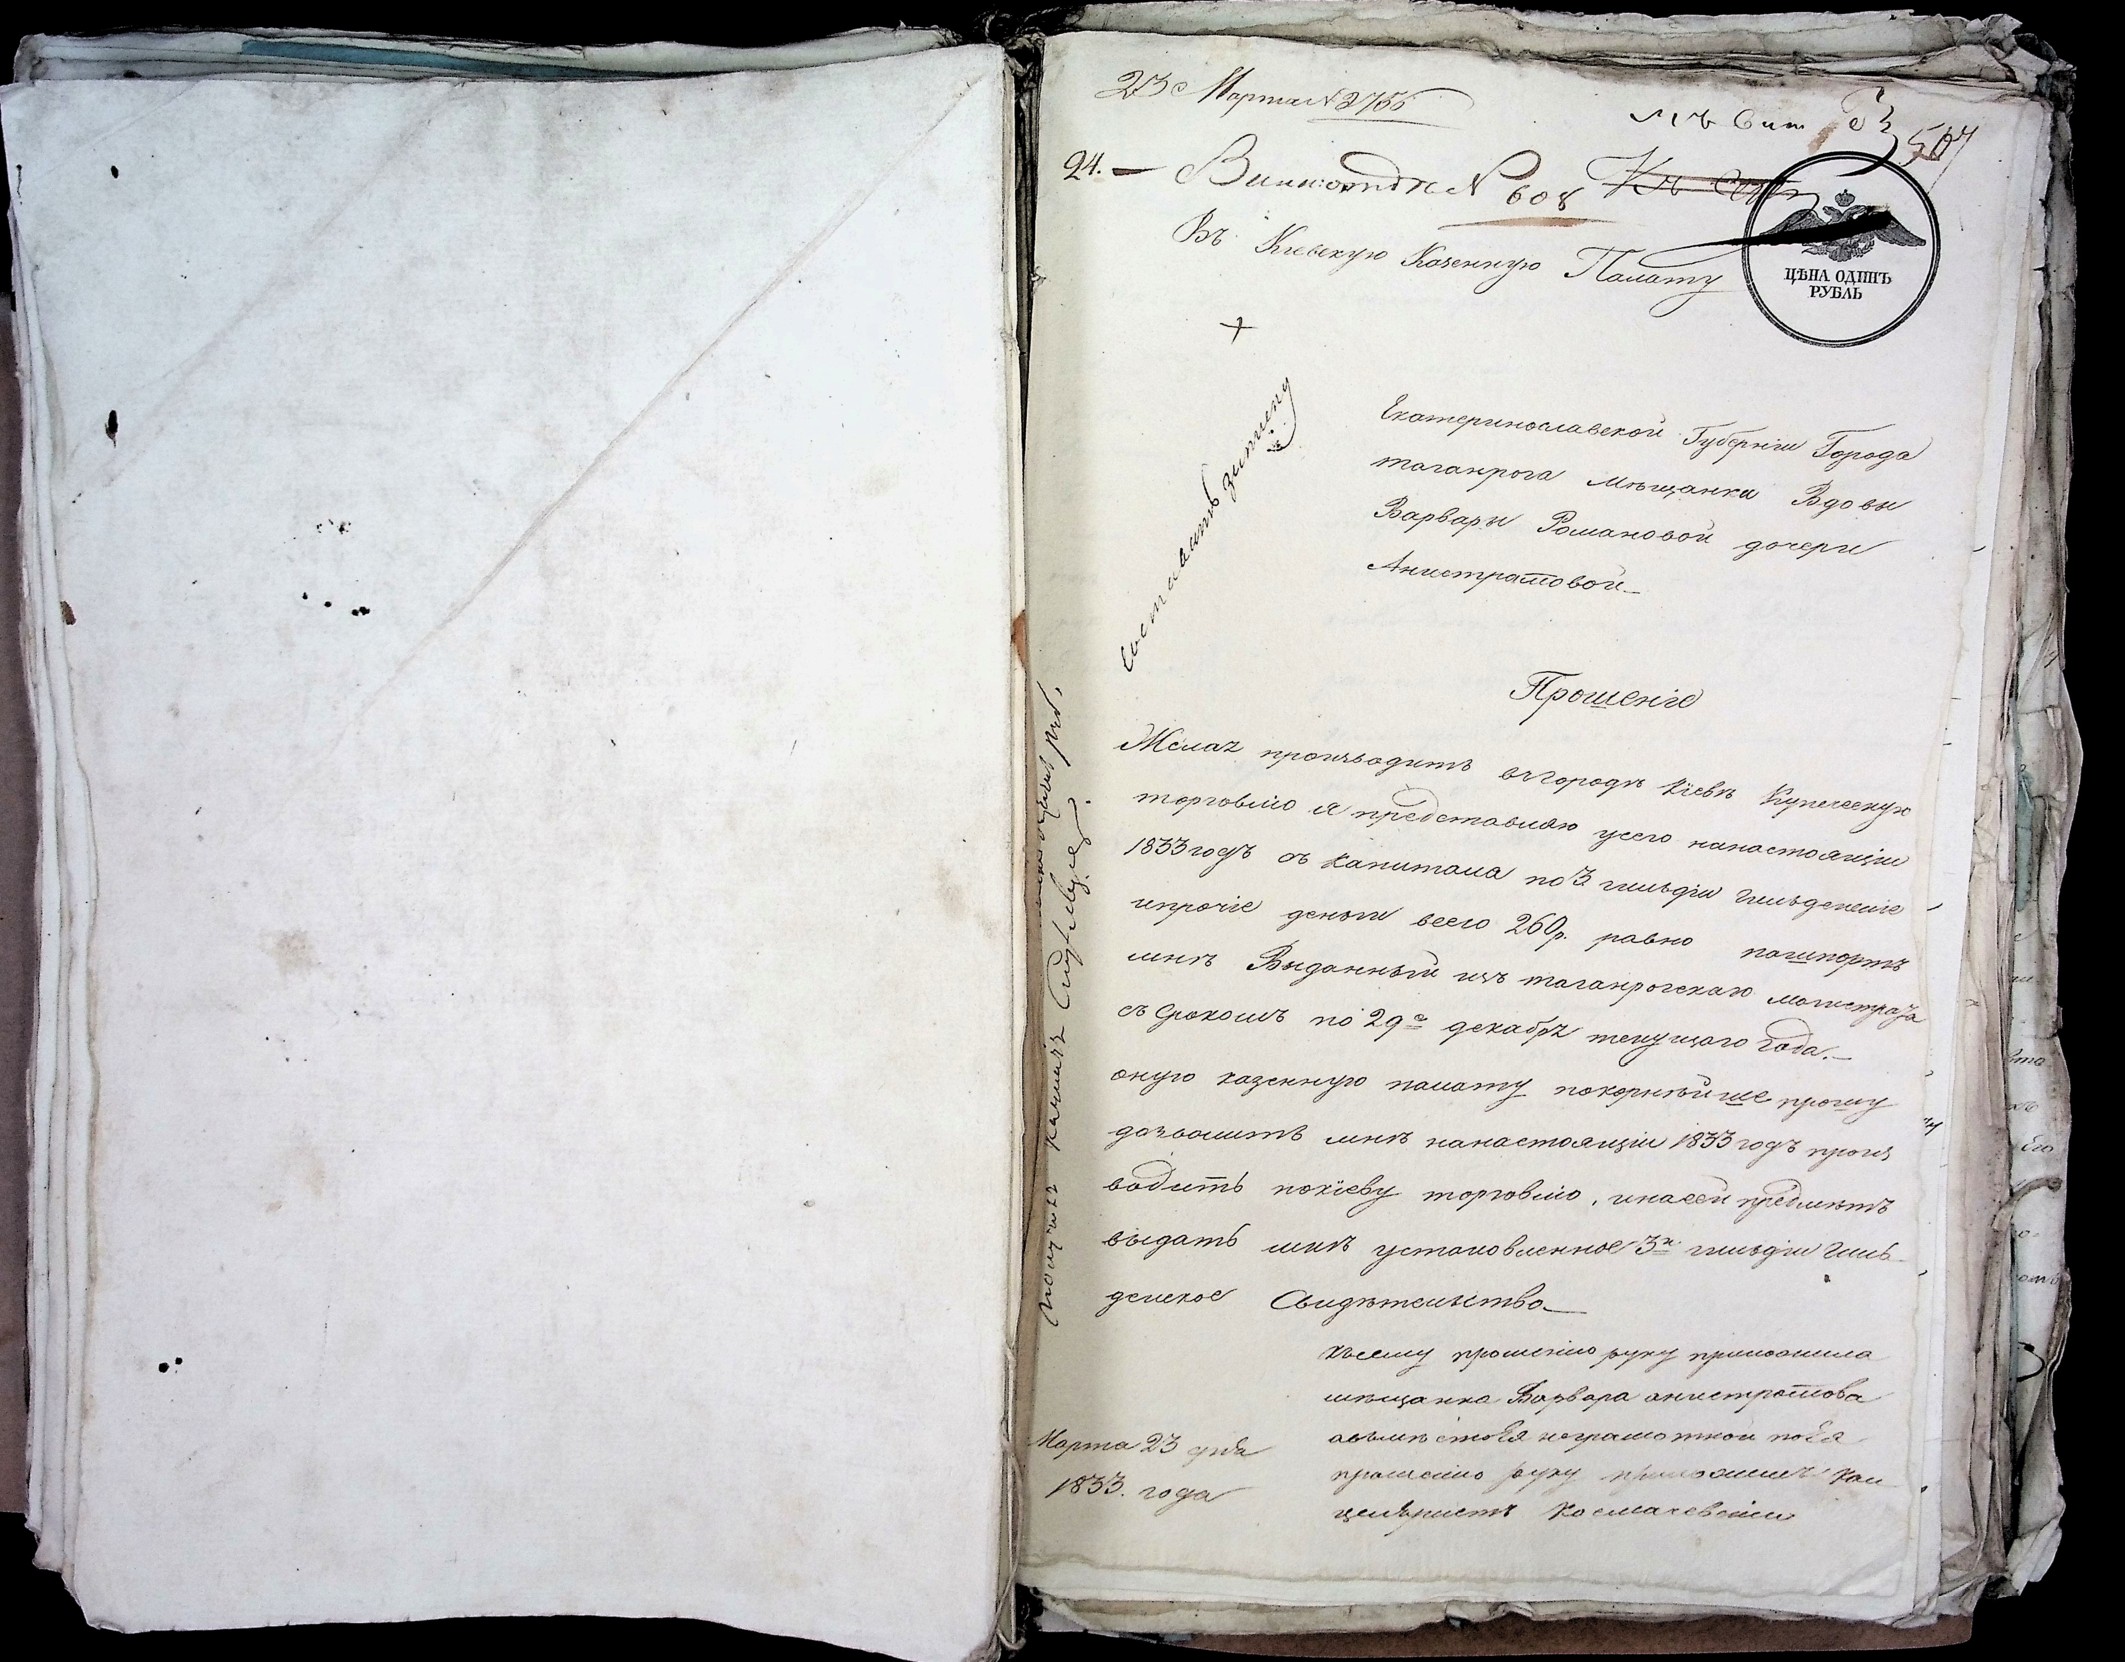 23 Марта № 2756
24. — Вин: отд: № 608
507
Въ Кіевскую Казенную Палату
ЦѢНА ОДИНЪ
РУБЛЬ
Екатеринославской Губерніи Города
таганрога мѣщанки Вдовы
Варвары Романовой дочери
Анистратовой
Прошеніе
Желая произъводить въ городѣ Кіевѣ Купеческую
торговлю я представляю у сего на настоящіи
1833 годъ съ капитала по 3 гильдіи гильденскіе
и прочіе деньги всего 260 р. равно пашпортъ
мнѣ Выданный изъ таганрогскаго магистрата
съ срокомъ по 29е декабря текущаго года.—
оную казенную палату покорнѣйше прошу
дозволить мнѣ на настоящіи 1833 годъ произ
водить по кіеву торговлю, и на сей предмѣтъ
выдать мнѣ установленное 3й гильдіи гиль
денское Свидѣтельство
къ сему прошенію руку приложила
мѣщанка Варвара анистратова
а вмѣсто Ея неграмотной по Ея
прошенію руку приложилъ кан
целяристъ
Марта 23 дня
1833. года